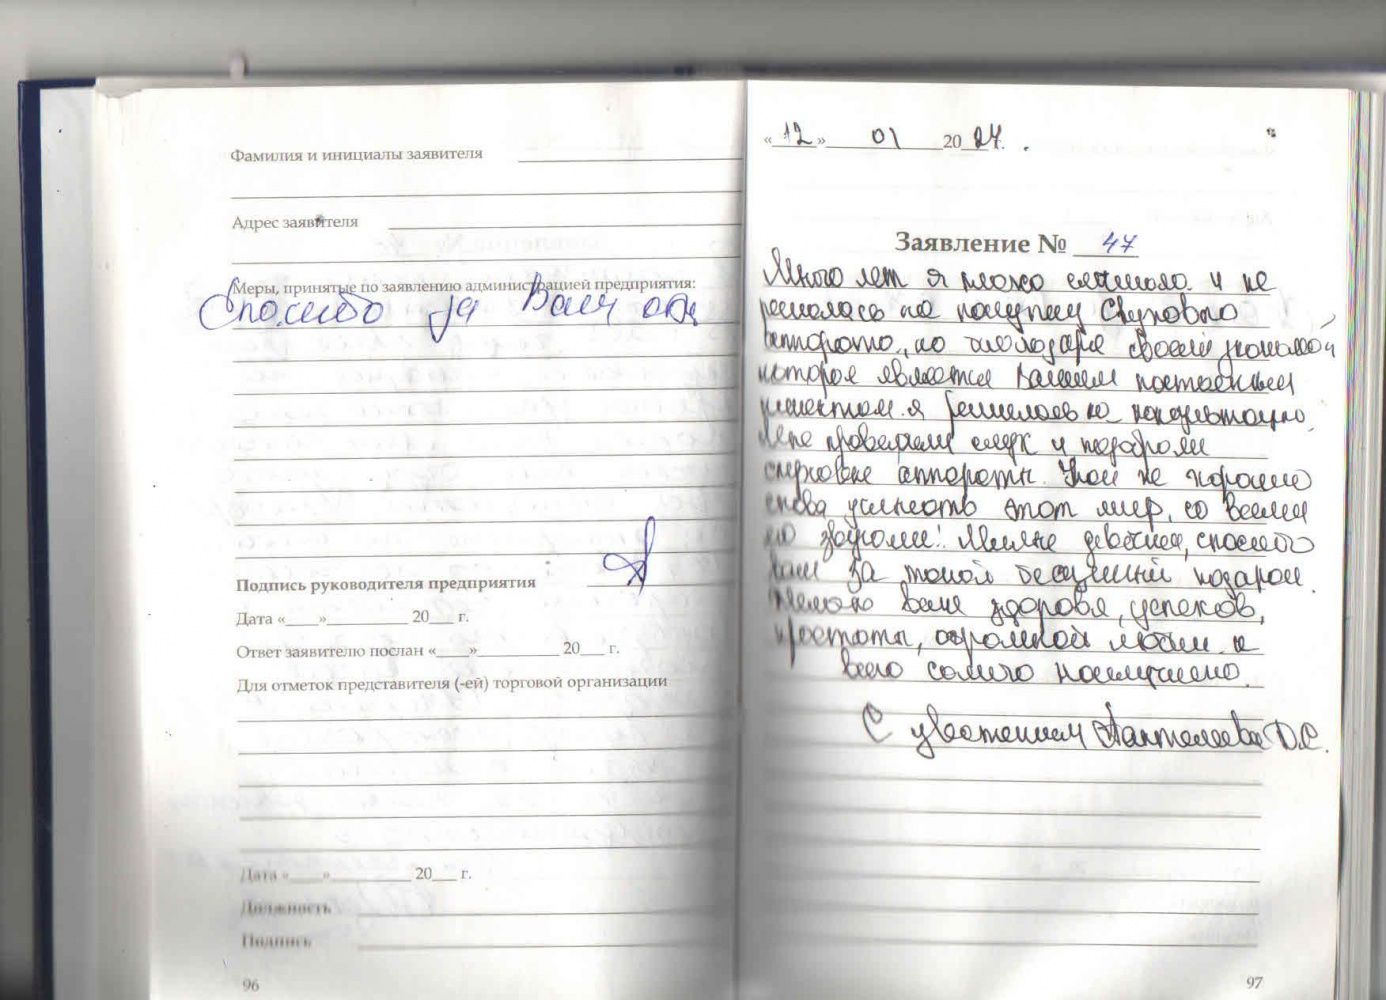 Фамилия и инициалы заявителя
Адрес заявителя
Меры, принятые по заявлению администрацией предприятия:
Спасибо за Ваш
Подпись руководителя предприятия
Дата «___»__________ 20___ г.
Ответ заявителю послан «___»__________ 20___ г.
Для отметок представителя (-ей) торговой организации
Дата «___»__________ 20___ г.
Должность
Подпись
96
«12» 01 2024.
Заявление № 47
Много лет я плохо слышала и не
решалась на покупку слухового
аппарата, но благодаря своей знакомой
которая является вашим постоянным
клиентом я решилась на консультацию.
Мне проверили слух и подобрали
слуховые аппараты. Как же хорошо
снова услышать этот мир, со всеми
его звуками! Милые девочки, спасибо
вам за такой бесценный подарок.
Желаю вам здоровья, успехов,
простоты, огромной любви и
всего самого наилучшего.
С уважением Пантелеева Д.С.
97